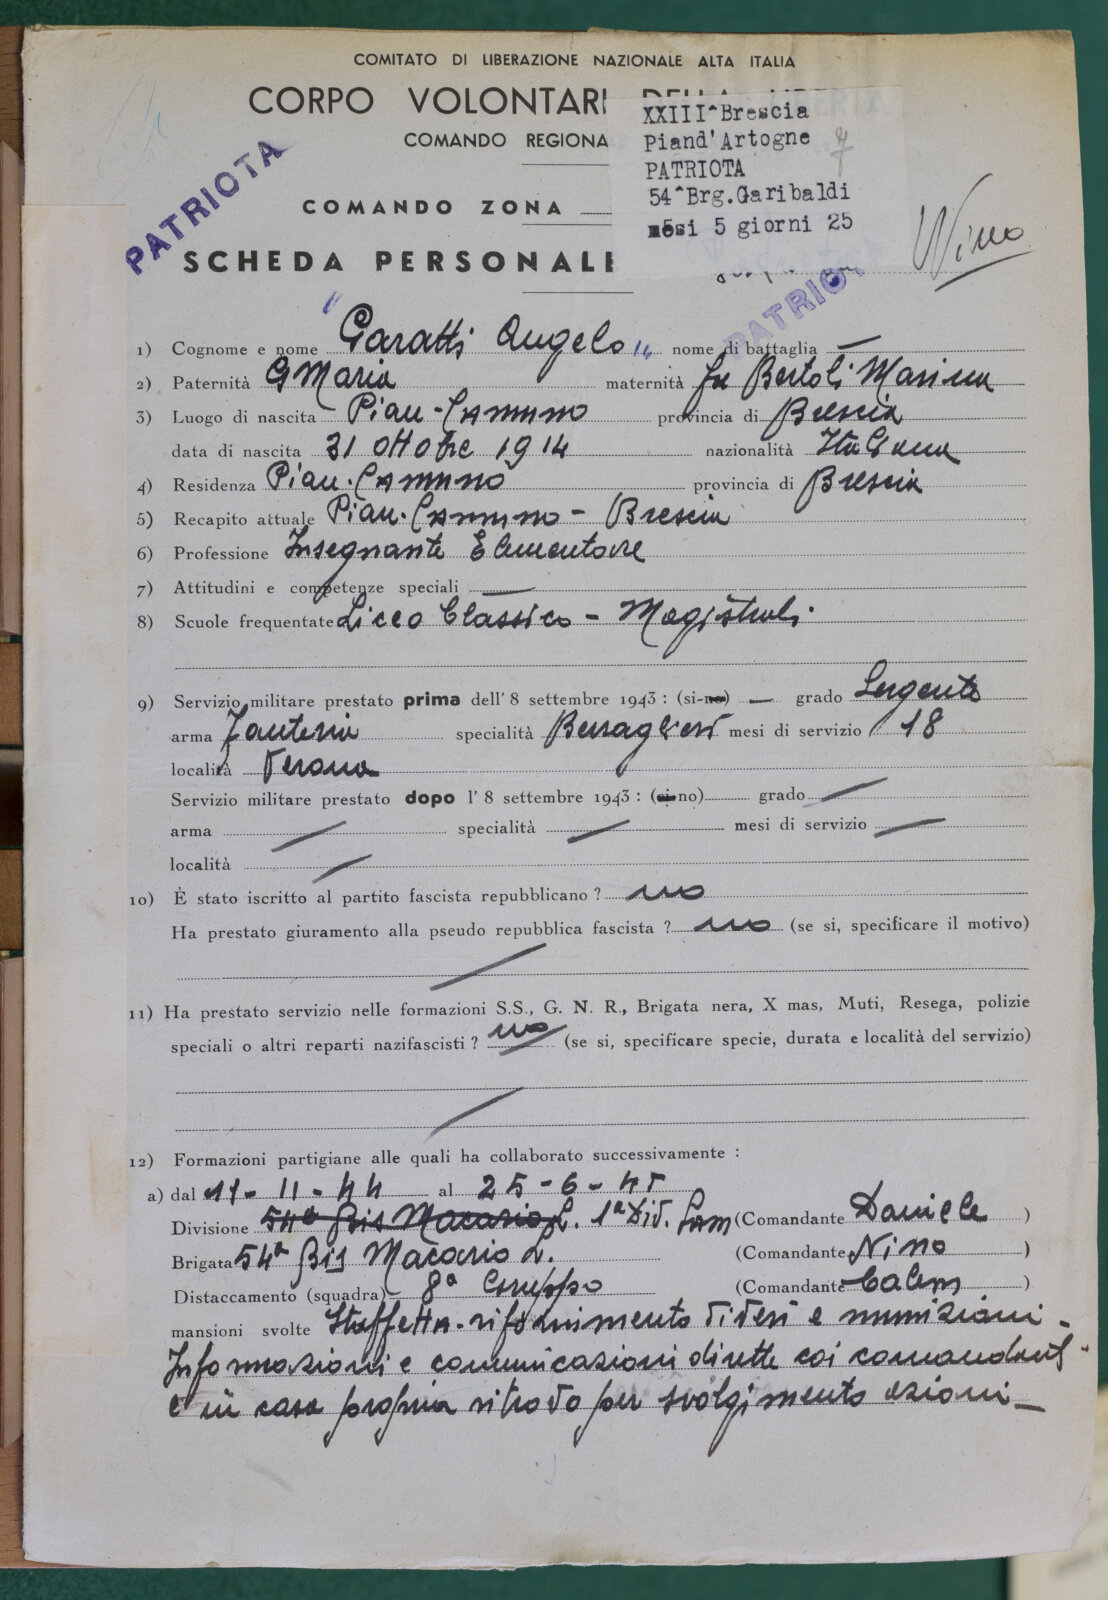 COMITATO DI LIBERAZIONE NAZIONALE ALTA ITALIA
CORPO VOLONTARI DELLA LIBERTÀ
COMANDO REGIONA
XXIII^Brescia
Piand'Artogne
PATRIOTA
54^Brg.Garibaldi
mesi 5 giorni 25
PATRIOTA
COMANDO ZONA
Nino
SCHEDA PERSONALE
PATRIOTA
1) Cognome e nome " Garatti Angelo " nome di battaglia —
2) Paternità GMaria maternità fu Bertoli Marina
3) Luogo di nascita Pian-Camuno provincia di Brescia
data di nascita 31 ottobre 1914 nazionalità Italiana
4) Residenza Pian-Camuno provincia di Brescia
5) Recapito attuale Pian-Camuno - Brescia
6) Professione Insegnante Elementare
7) Attitudini e competenze speciali —
8) Scuole frequentate Liceo Classico - Magistrali
9) Servizio militare prestato prima dell'8 settembre 1943: (si-no) — grado Sergente
arma Fanteria specialità Bersaglieri mesi di servizio 18
località Verona
Servizio militare prestato dopo l'8 settembre 1943: (si no) grado /
arma / specialità / mesi di servizio /
località /
10) È stato iscritto al partito fascista repubblicano? no
Ha prestato giuramento alla pseudo repubblica fascista? no (se si, specificare il motivo)
11) Ha prestato servizio nelle formazioni S.S., G. N. R., Brigata nera, X mas, Muti, Resega, polizie
speciali o altri reparti nazifascisti? no (se si, specificare specie, durata e località del servizio)
12) Formazioni partigiane alle quali ha collaborato successivamente:
a) dal 11-11-44 al 25-6-45
Divisione 54ª bis Macario L. 1ª Div. Lom (Comandante Daniele )
Brigata 54ª bis Macario L. (Comandante Nino )
Distaccamento (squadra) 8ª Gruppo (Comandante )
mansioni svolte Staffetta - rifornimento viveri e munizioni -
Informazioni e comunicazioni dirette coi comandanti
e in casa propria ritrovo per svolgimento azioni -